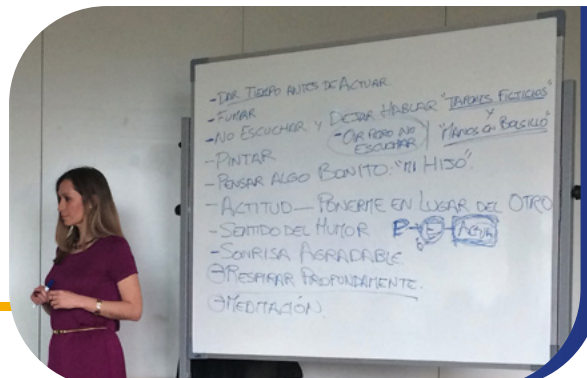 - DAR TIEMPO ANTES DE ACTUAR
- FUMAR
- NO ESCUCHAR Y DEJAR HABLAR "TAPONES FICTICIOS"
- OIR PERO NO ESCUCHAR Y "MANOS EN BOLSILLO"
- PINTAR
- PENSAR ALGO BONITO: "MI HIJO"
- ACTITUD — PONERME EN LUGAR DEL OTRO
- SENTIDO DEL HUMOR P → E → ACTUA
- SONRISA AGRADABLE
RESPIRAR PROFUNDAMENTE.
MEDITACIÓN.